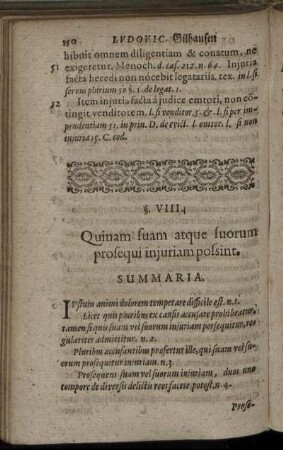 150 LVDOVIC. Gilhausen
hibuit omnem diligentiam & conatum, ne
51 exigeretur. Menoch. d. cas. 212. n. 64. Injuria
facta heredi non nocebit legatariis, tex. in l. si
servum plurium 50 §. 1. de legat. 1.
52 Item injuria facta à judice emtori, non cõ-
tingit venditorem. L. si venditor. 5. & l. si per im-
prudentiam 51. in prin. D. de evict. l. emtor. l. si non
injuria 15. C. eod.
§. VIII.
Quinam suam atque suorum
prosequi injuriam possint.
SUMMARIA.
IVstum animi dolorem temperare difficile est. n. 1.
Licet quis pluribus ex causis accusare prohibeatur,
tamen si quis suam vel suorum injuriam persequitur, re-
gulariter admittitur. n. 2.
Pluribus accusantibus prafertur ille, qui suam vel su-
orum prosequitur injuriam. n. 3.
Prosequens suam vel suorum injuriam, duos uno
tempore de diversis delictis reos facere potest, n. 4.
Prose-